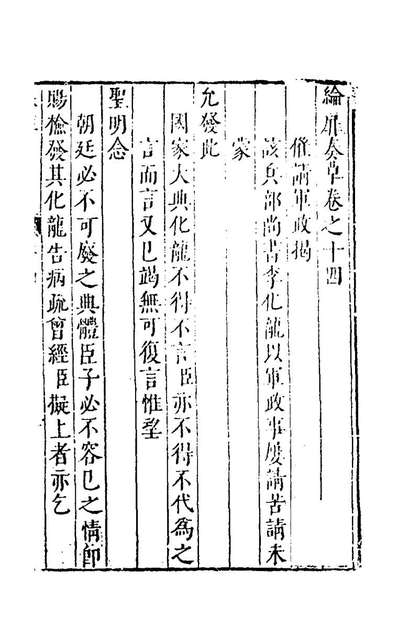 綸扉奏草卷之十四
催請軍政揭
該兵部尚書李化龍以軍政事屢請苦請未
蒙
允發此
國家大典化龍不得不言臣亦不得不代為之
言而言又已竭無可復言惟望
聖明念
朝廷必不可廢之典體臣子必不容已之情即
賜檢發其化龍告病疏曾經臣擬上者亦乞